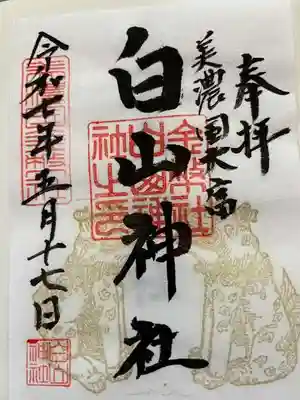 奉拝
美濃国大富
白山神社
令和七年五月十七日